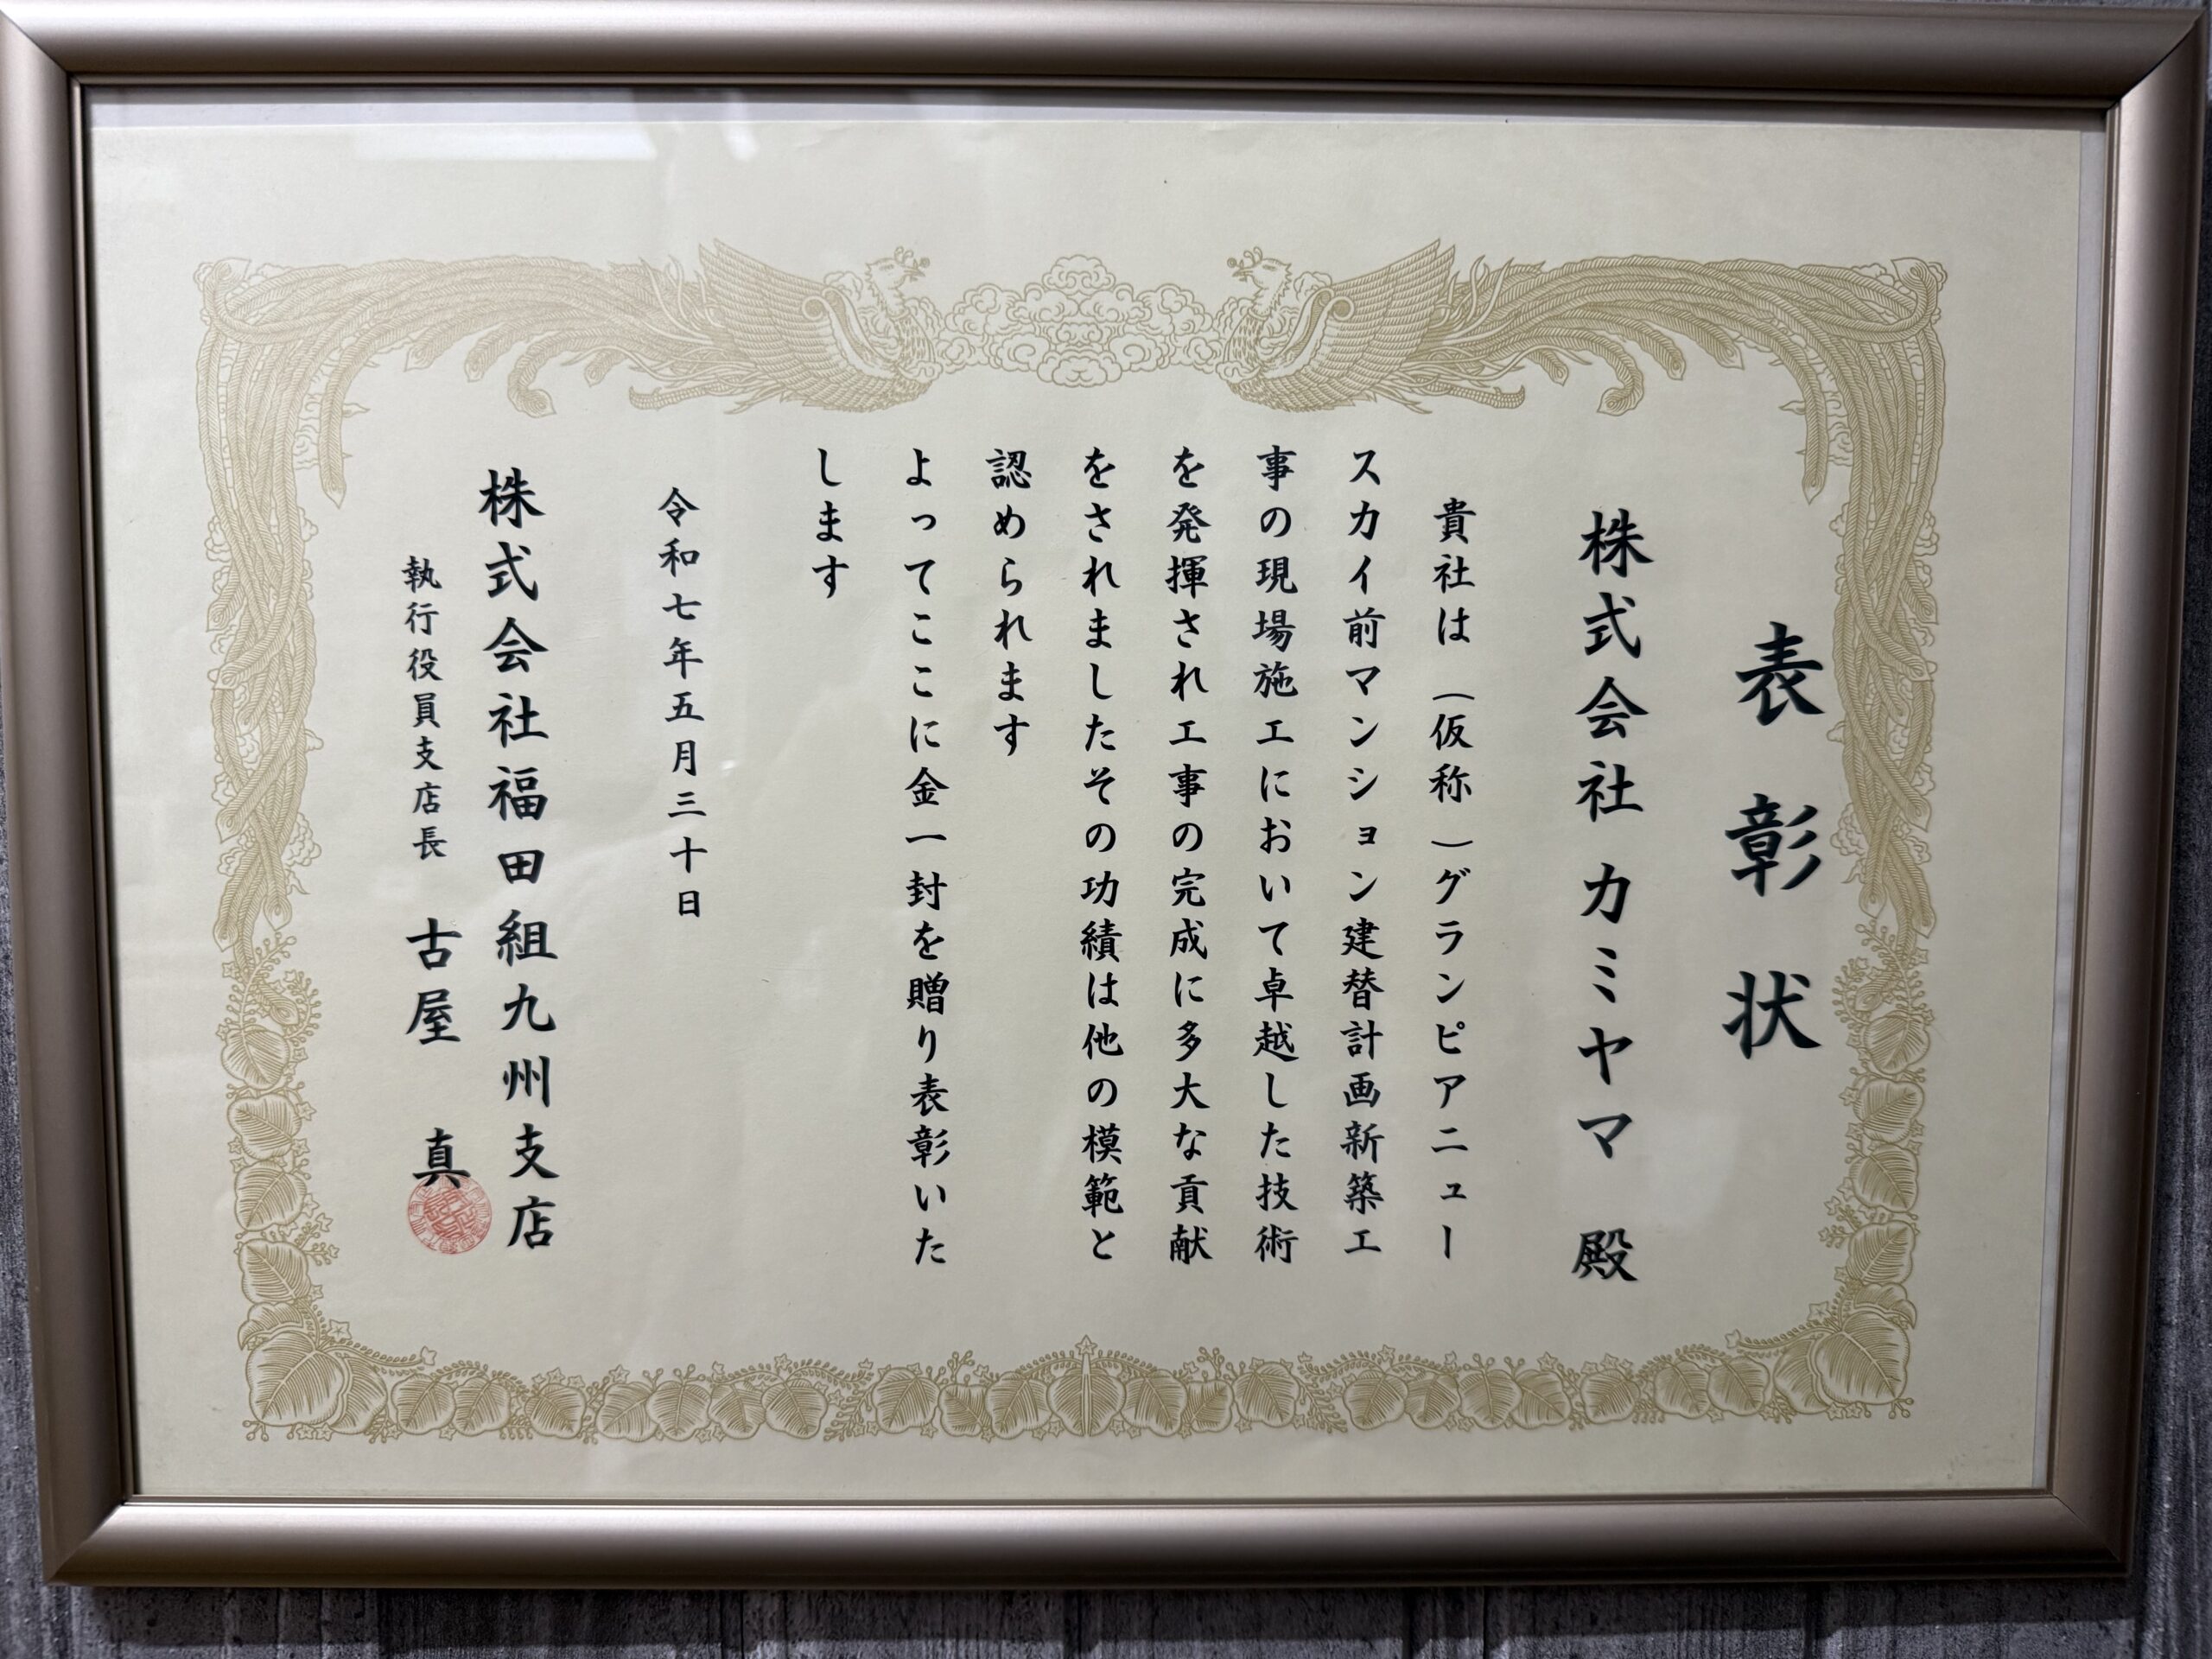 表彰状
株式会社カミヤマ 殿
貴社は(仮称)グランピアニュー
スカイ前マンション建替計画新築工
事の現場施工において卓越した技術
を発揮され工事の完成に多大な貢献
をされましたその功績は他の模範と
認められます
よってここに金一封を贈り表彰いた
します
令和七年五月三十日
株式会社福田組九州支店
執行役員支店長 古屋 真